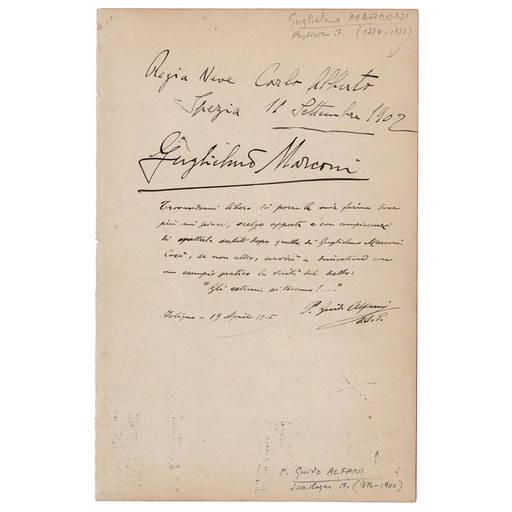 Guglielmo MARCONI
(1874-1937)
Regia Nave Carlo Alberto
Spezia 11 Settembre 1902
Guglielmo Marconi
Trovandomi libero di porre la mia firma dove
più mi piace, scelgo apposta e con compiacenza
di subito dopo quella di Guglielmo Marconi
Così, se non altro, servirà a dimostrare con
un esempio pratico la verità del detto:
"Gli estremi si toccano!..."
P. Guido Alfani
19 Aprile
P. Guido ALFANI
(1876-1940)